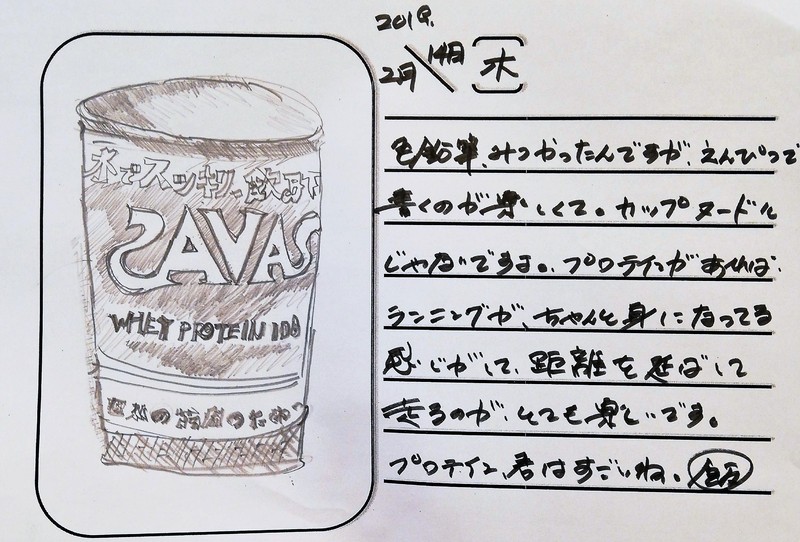 2019.
2月14日 木
水でスッキリ飲める
SAVAS
WHEY PROTEIN 100
理想の筋肉のため
色鉛筆、みつかったんですが、えんぴつで
書くのが楽しくて。カップヌードル
じゃないですよ。プロテインがあれば、
ランニングが、ちゃんと身になってる
感じがして、距離を延ばして
走るのが、とても楽しいです。
プロテイン君はすごいね。